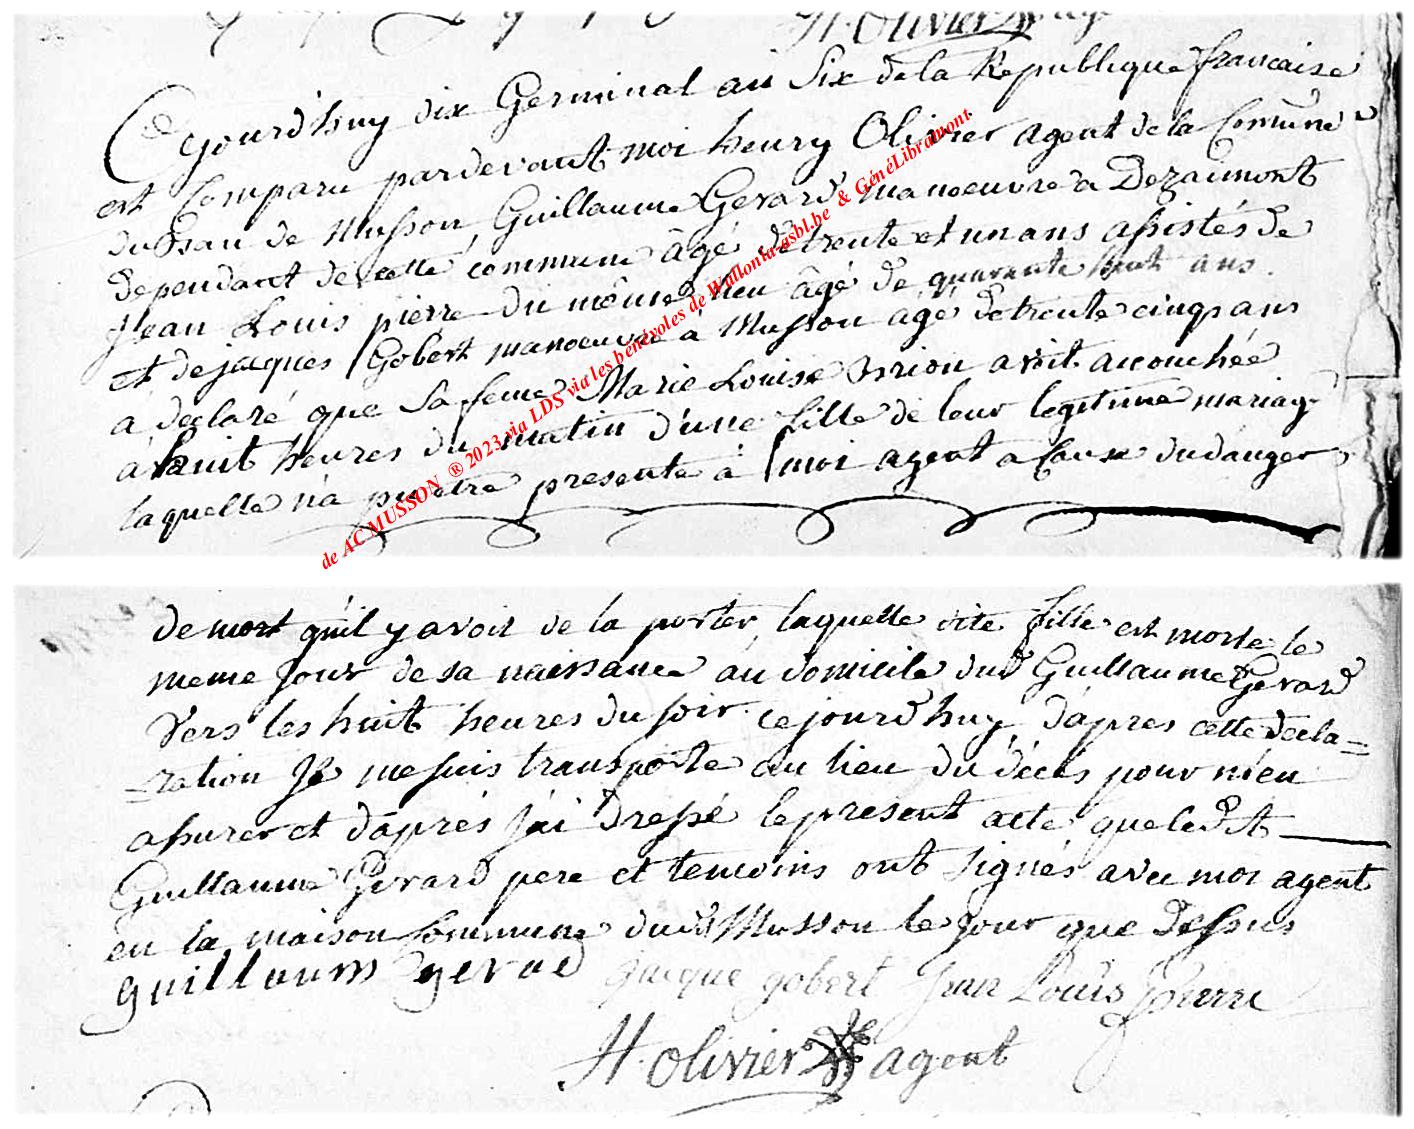 H. Olivier agt
Cejourd'huy dix Germinal an Six de la Republique francaise
est Comparu pardevant moi henry Olivier agent de la Comune
du Ban de Musson, Guillaume Gerard manoeuvre à Dezaumont
dependant de cette commune âgé de trente et un ans assistés de
Jean Louis pierre du même lieu âgé de quarante huit ans
et de jacques Gobert manoeuvre à Musson âgé de trente cinq ans
à declaré que sa feme Marie Louise avoit acouchée
à huit heures du matin d'une fille de leur legitime mariage
laquelle n'a pu etre presenté à moi agent a Cause du danger
de AC MUSSON ® 2023 via LDS via les bénévoles de Wallonia-asbl.be & GénéLibramont
de mort qu'il y avoit de la porter, laquelle dite fille est morte le
meme jour de sa naissance au domicile dud Guillaume Gerard
Vers les huit heures du soir. cejourd'huy, d'apres cette decla=
=ration Je me suis transporté au lieu du décès pour m'en
assurer et d'aprés j'ai dressé le present acte que ledit
Guillaume Gerard pere et temoins ont signés avec moi agent
en la maison Commune dud Musson le jour que dessus
guillaum gerad jacque gobert Jean Louis pierre
H. olivier agent